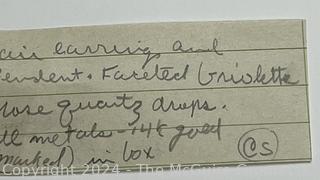 air earring and
endent. Faceted briolette
Rose quartz drops.
metals - 14k gold
marked) in box
CS
Copyright 2024 - The McGuire